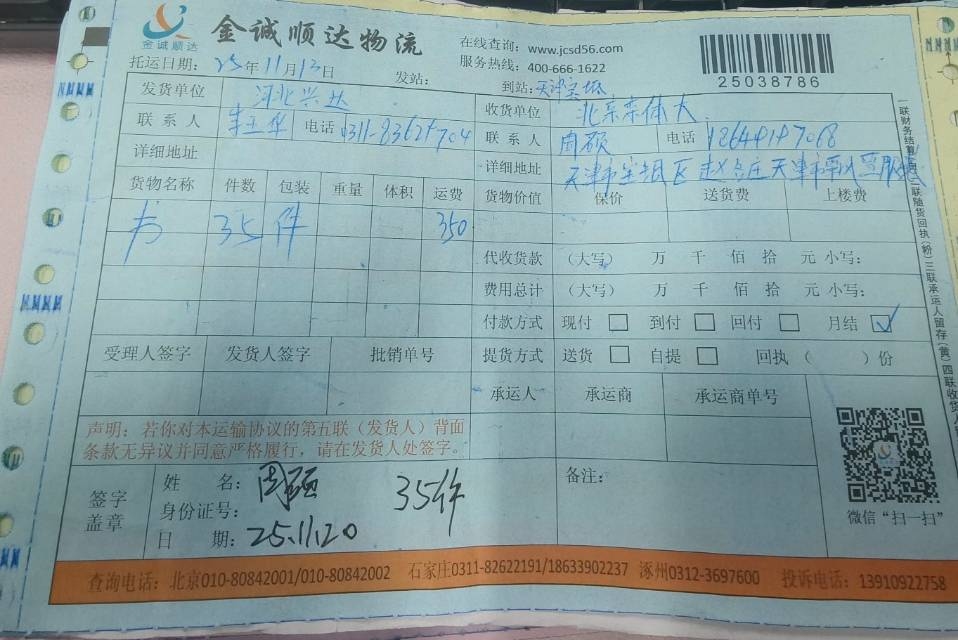 金诚顺达
金诚顺达物流
在线查询：www.jcsd56.com
服务热线：400-666-1622
25038786
托运日期：25年11月13日 发站： 到站：天津宝坻
发货单位 河北兴达 收货单位 北京京体大
联系人 电话 联系人 周硕 电话
详细地址 详细地址 天津市宝坻区赵各庄天津市
货物名称 件数 包装 重量 体积 运费 货物价值 保价 送货费 上楼费
书 35 件 350
代收货款 （大写） 万 千 佰 拾 元 小写：
费用总计 （大写） 万 千 佰 拾 元 小写：
付款方式 现付 □ 到付 □ 回付 □ 月结 ☑
受理人签字 发货人签字 批销单号 提货方式 送货 □ 自提 □ 回执（ ）份
承运人 承运商 承运商单号
声明：若你对本运输协议的第五联（发货人）背面
条款无异议并同意严格履行，请在发货人处签字。
签字
盖章
姓 名：周硕 35件
身份证号：
日 期：25.11.20
备注：
微信“扫一扫”
一联财务结算 二联随货回执(粉)三联承运人留存(黄)四联收货人
查询电话：北京010-80842001/010-80842002 石家庄0311-82622191/18633902237 涿州0312-3697600 投诉电话：13910922758